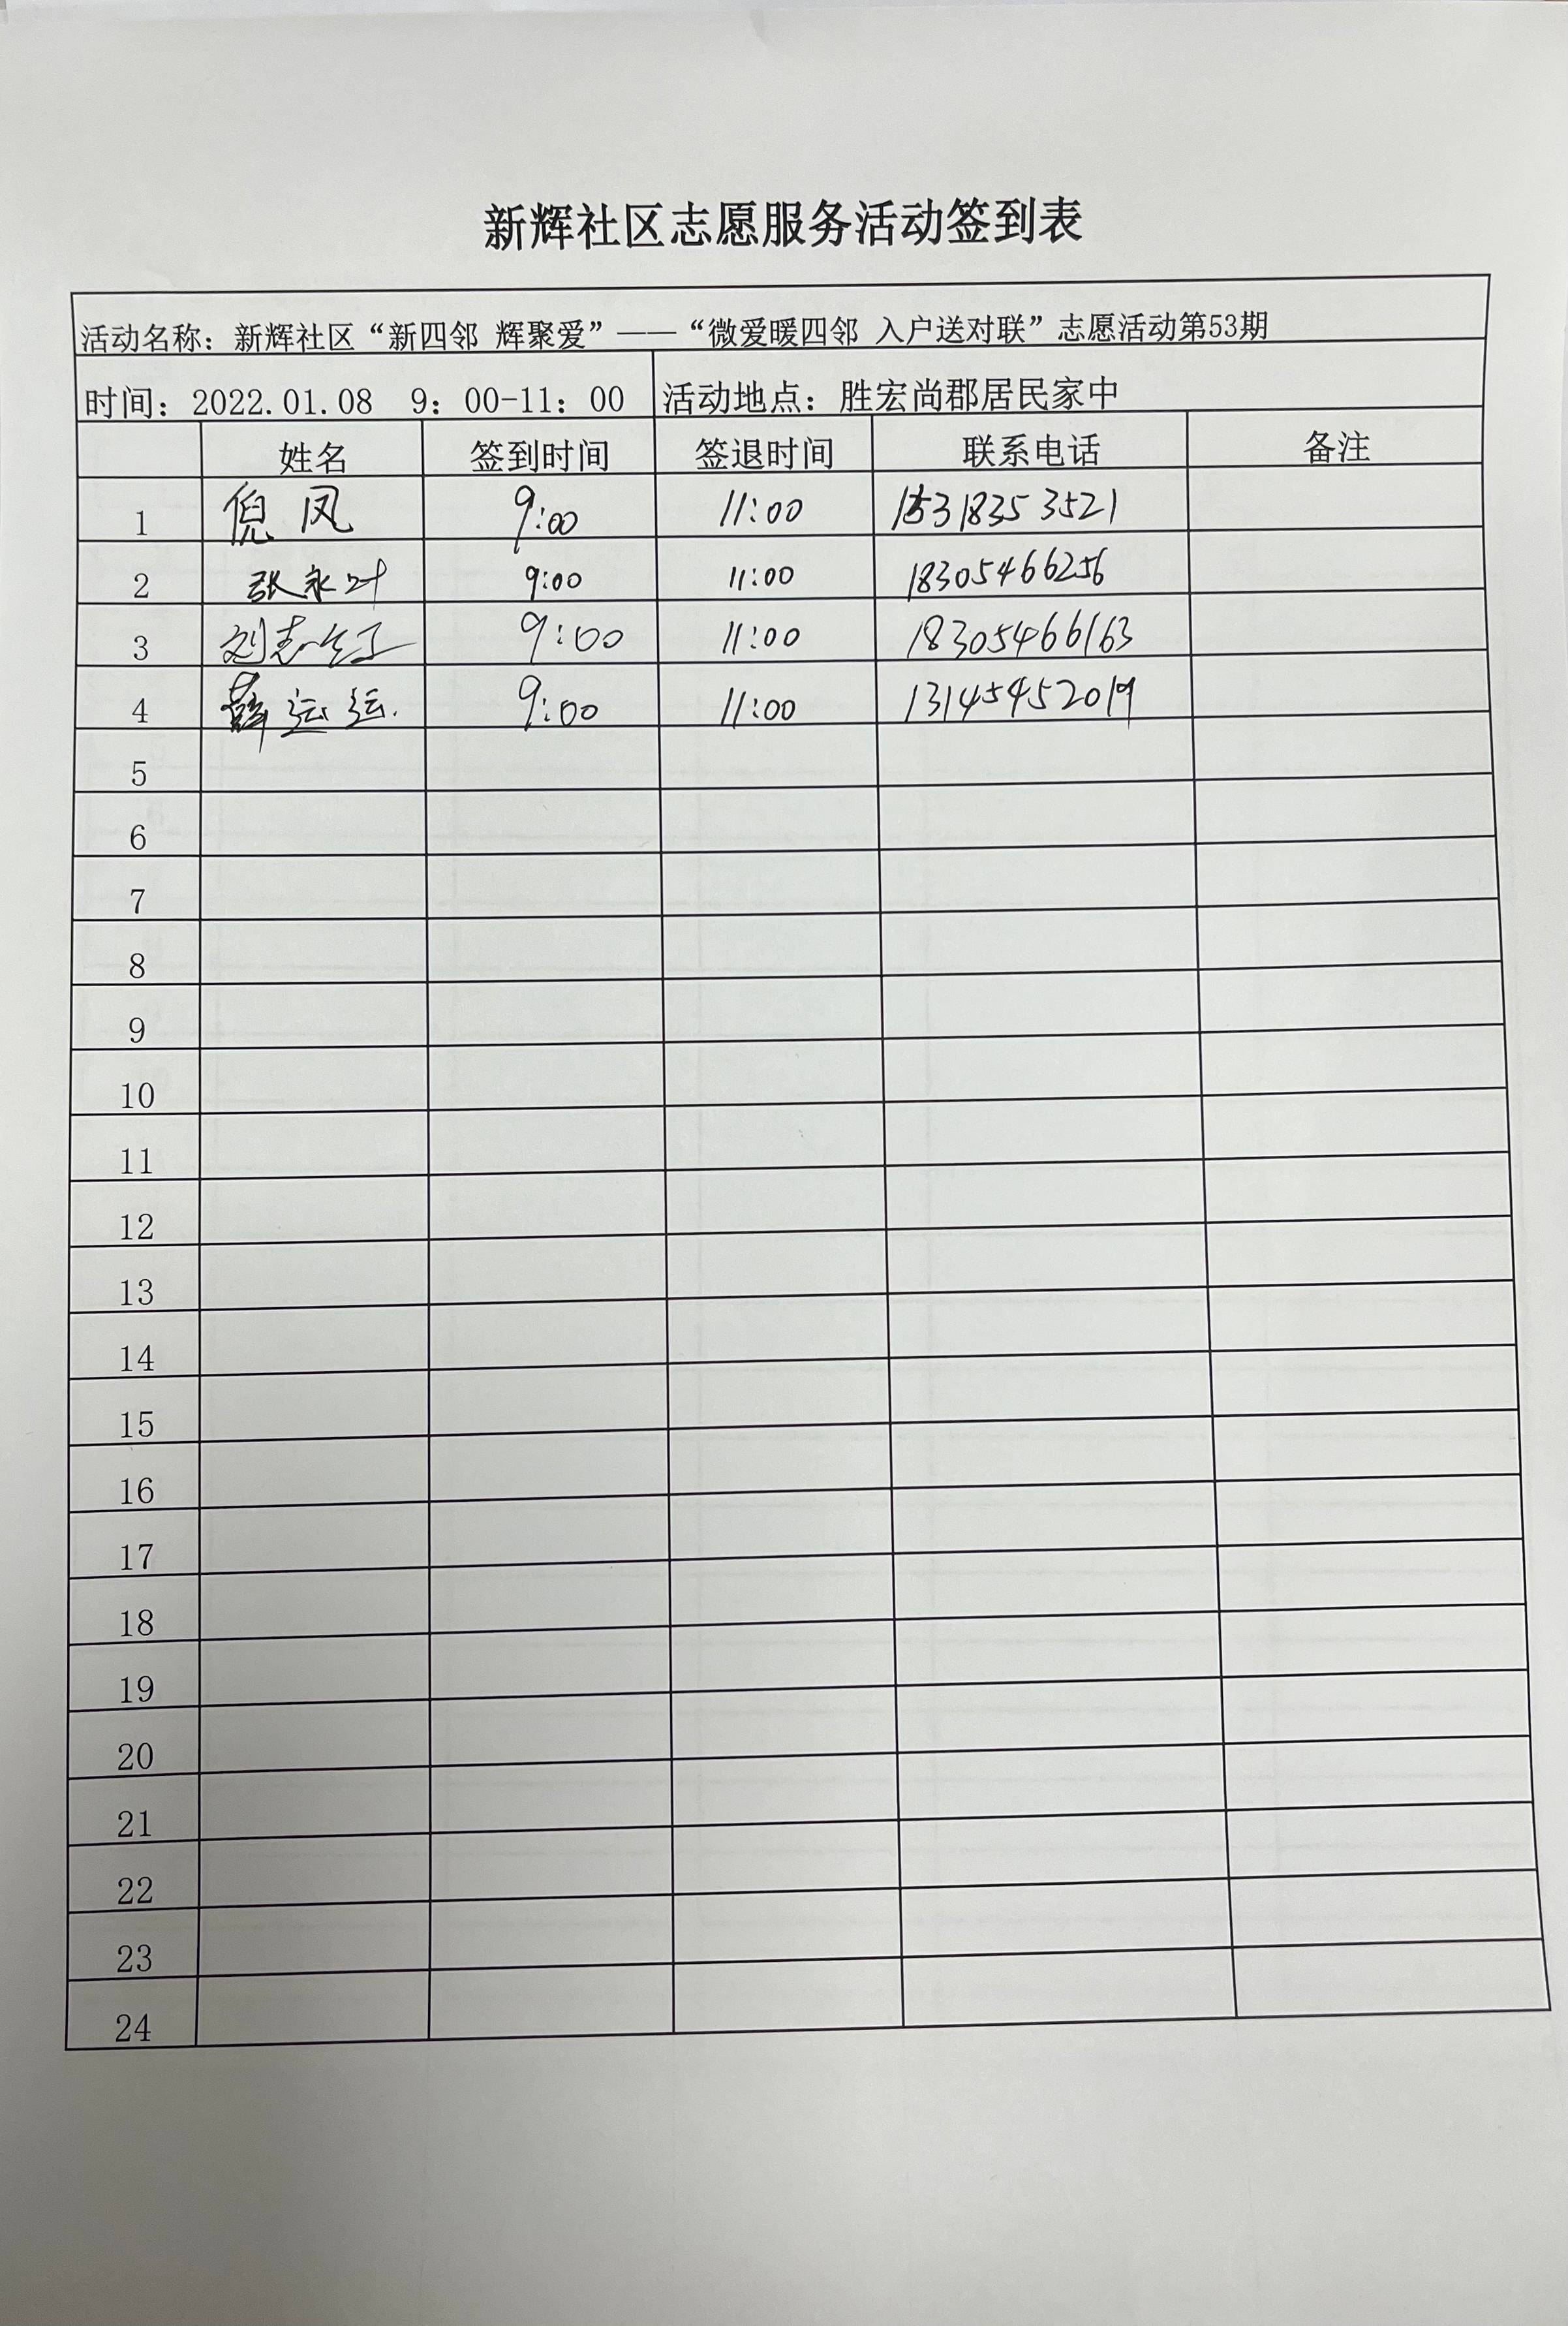 新辉社区志愿服务活动签到表
活动名称：新辉社区“新四邻 辉聚爱”——“微爱暖四邻 入户送对联”志愿活动第53期
时间：2022.01.08 9：00-11：00 活动地点：胜宏尚郡居民家中
姓名 签到时间 签退时间 联系电话 备注
1 倪凤 9:00 11:00 15318353521
2 张永叶 9:00 11:00 18305466256
3 刘志红 9:00 11:00 18305466163
4 薛运运 9:00 11:00 13145452019
5
6
7
8
9
10
11
12
13
14
15
16
17
18
19
20
21
22
23
24